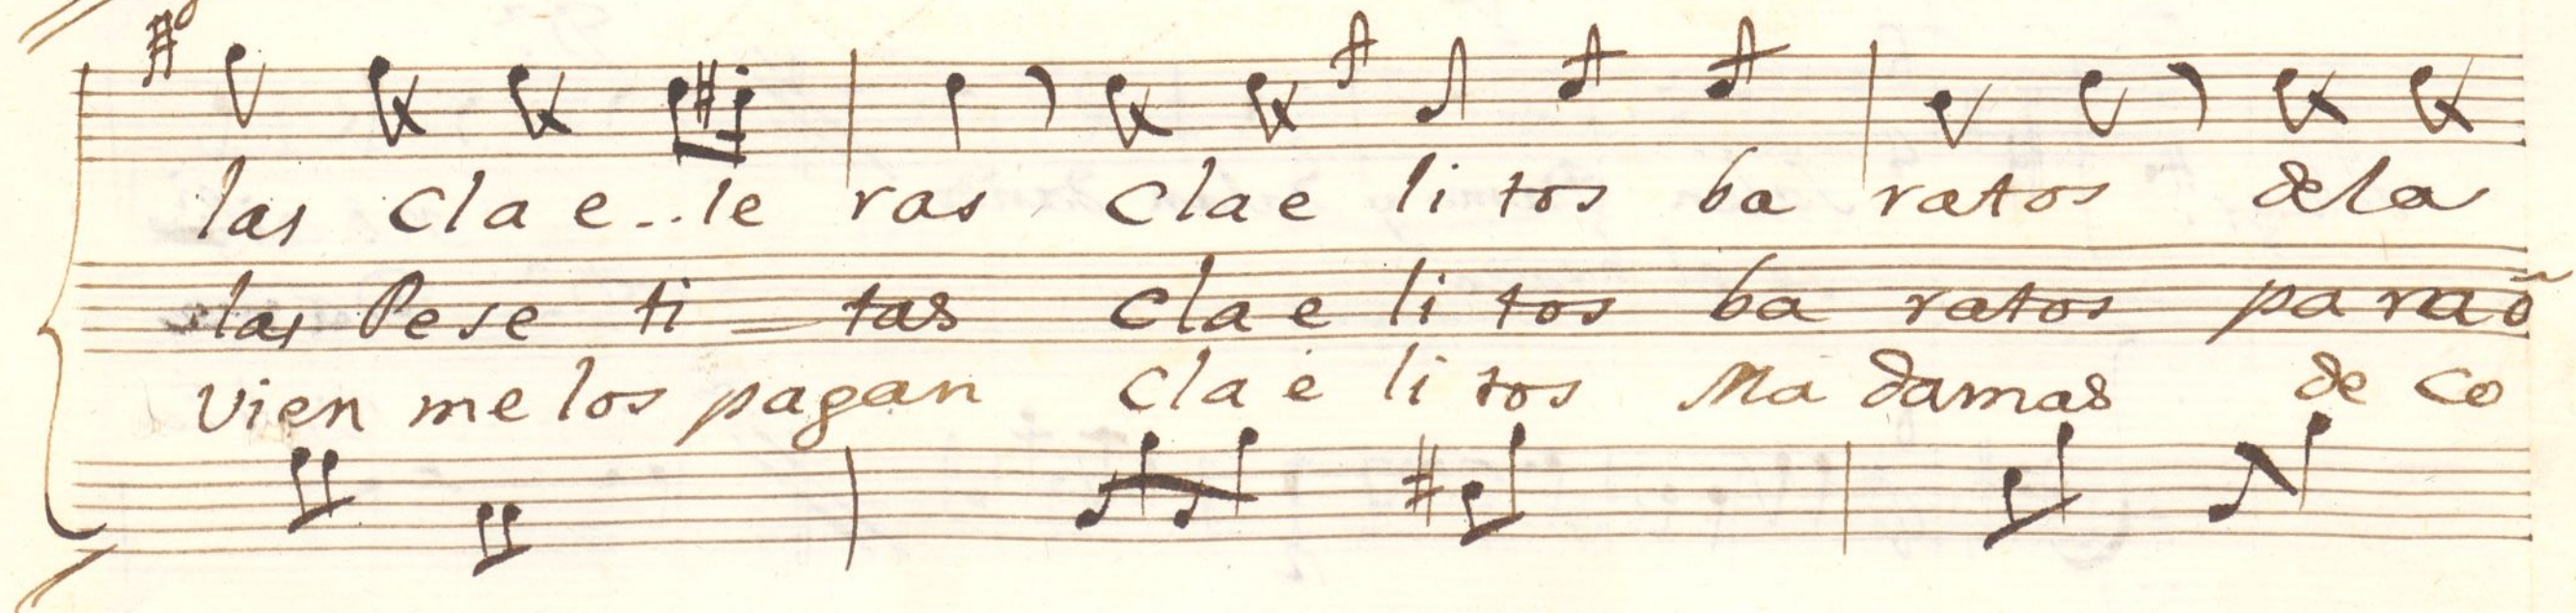 las Cla e..le ras Cla e li tos ba ratos dela
las Pese ti _ tas Cla e li tos ba ratos para õ
vien me los pagan Cla e li tos Ma damas de co